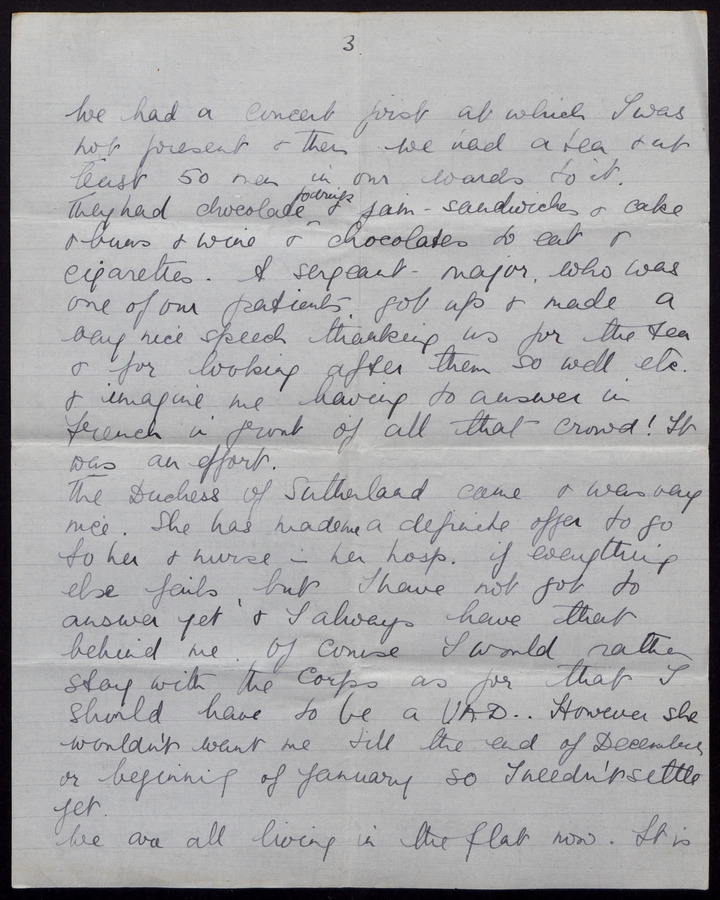 3
We had a concert first at which I was
not present & then we had a tea & at
least 50 men in our wards to it.
They had chocolate & jam-sandwiches & cake
& buns & wine & chocolates to eat &
cigarettes. A sergeant-major, who was
one of our patients, got up & made a
very nice speech thanking us for the tea
& for looking after them so well etc.
& imagine me having to answer in
French in front of all that crowd! It
was an effort.
The Duchess of Sutherland came & was very
nice. She has made me a definite offer to go
to her & nurse in her hosp. if everything
else fails, but I have not got to
answer yet & I always have that
behind me. Of course I would rather
stay with the Corps as for that I
should have to be a VAD.. However she
wouldn't want me till the end of December
or beginning of January so I needn't settle
yet.
We are all living in the flat now. It is